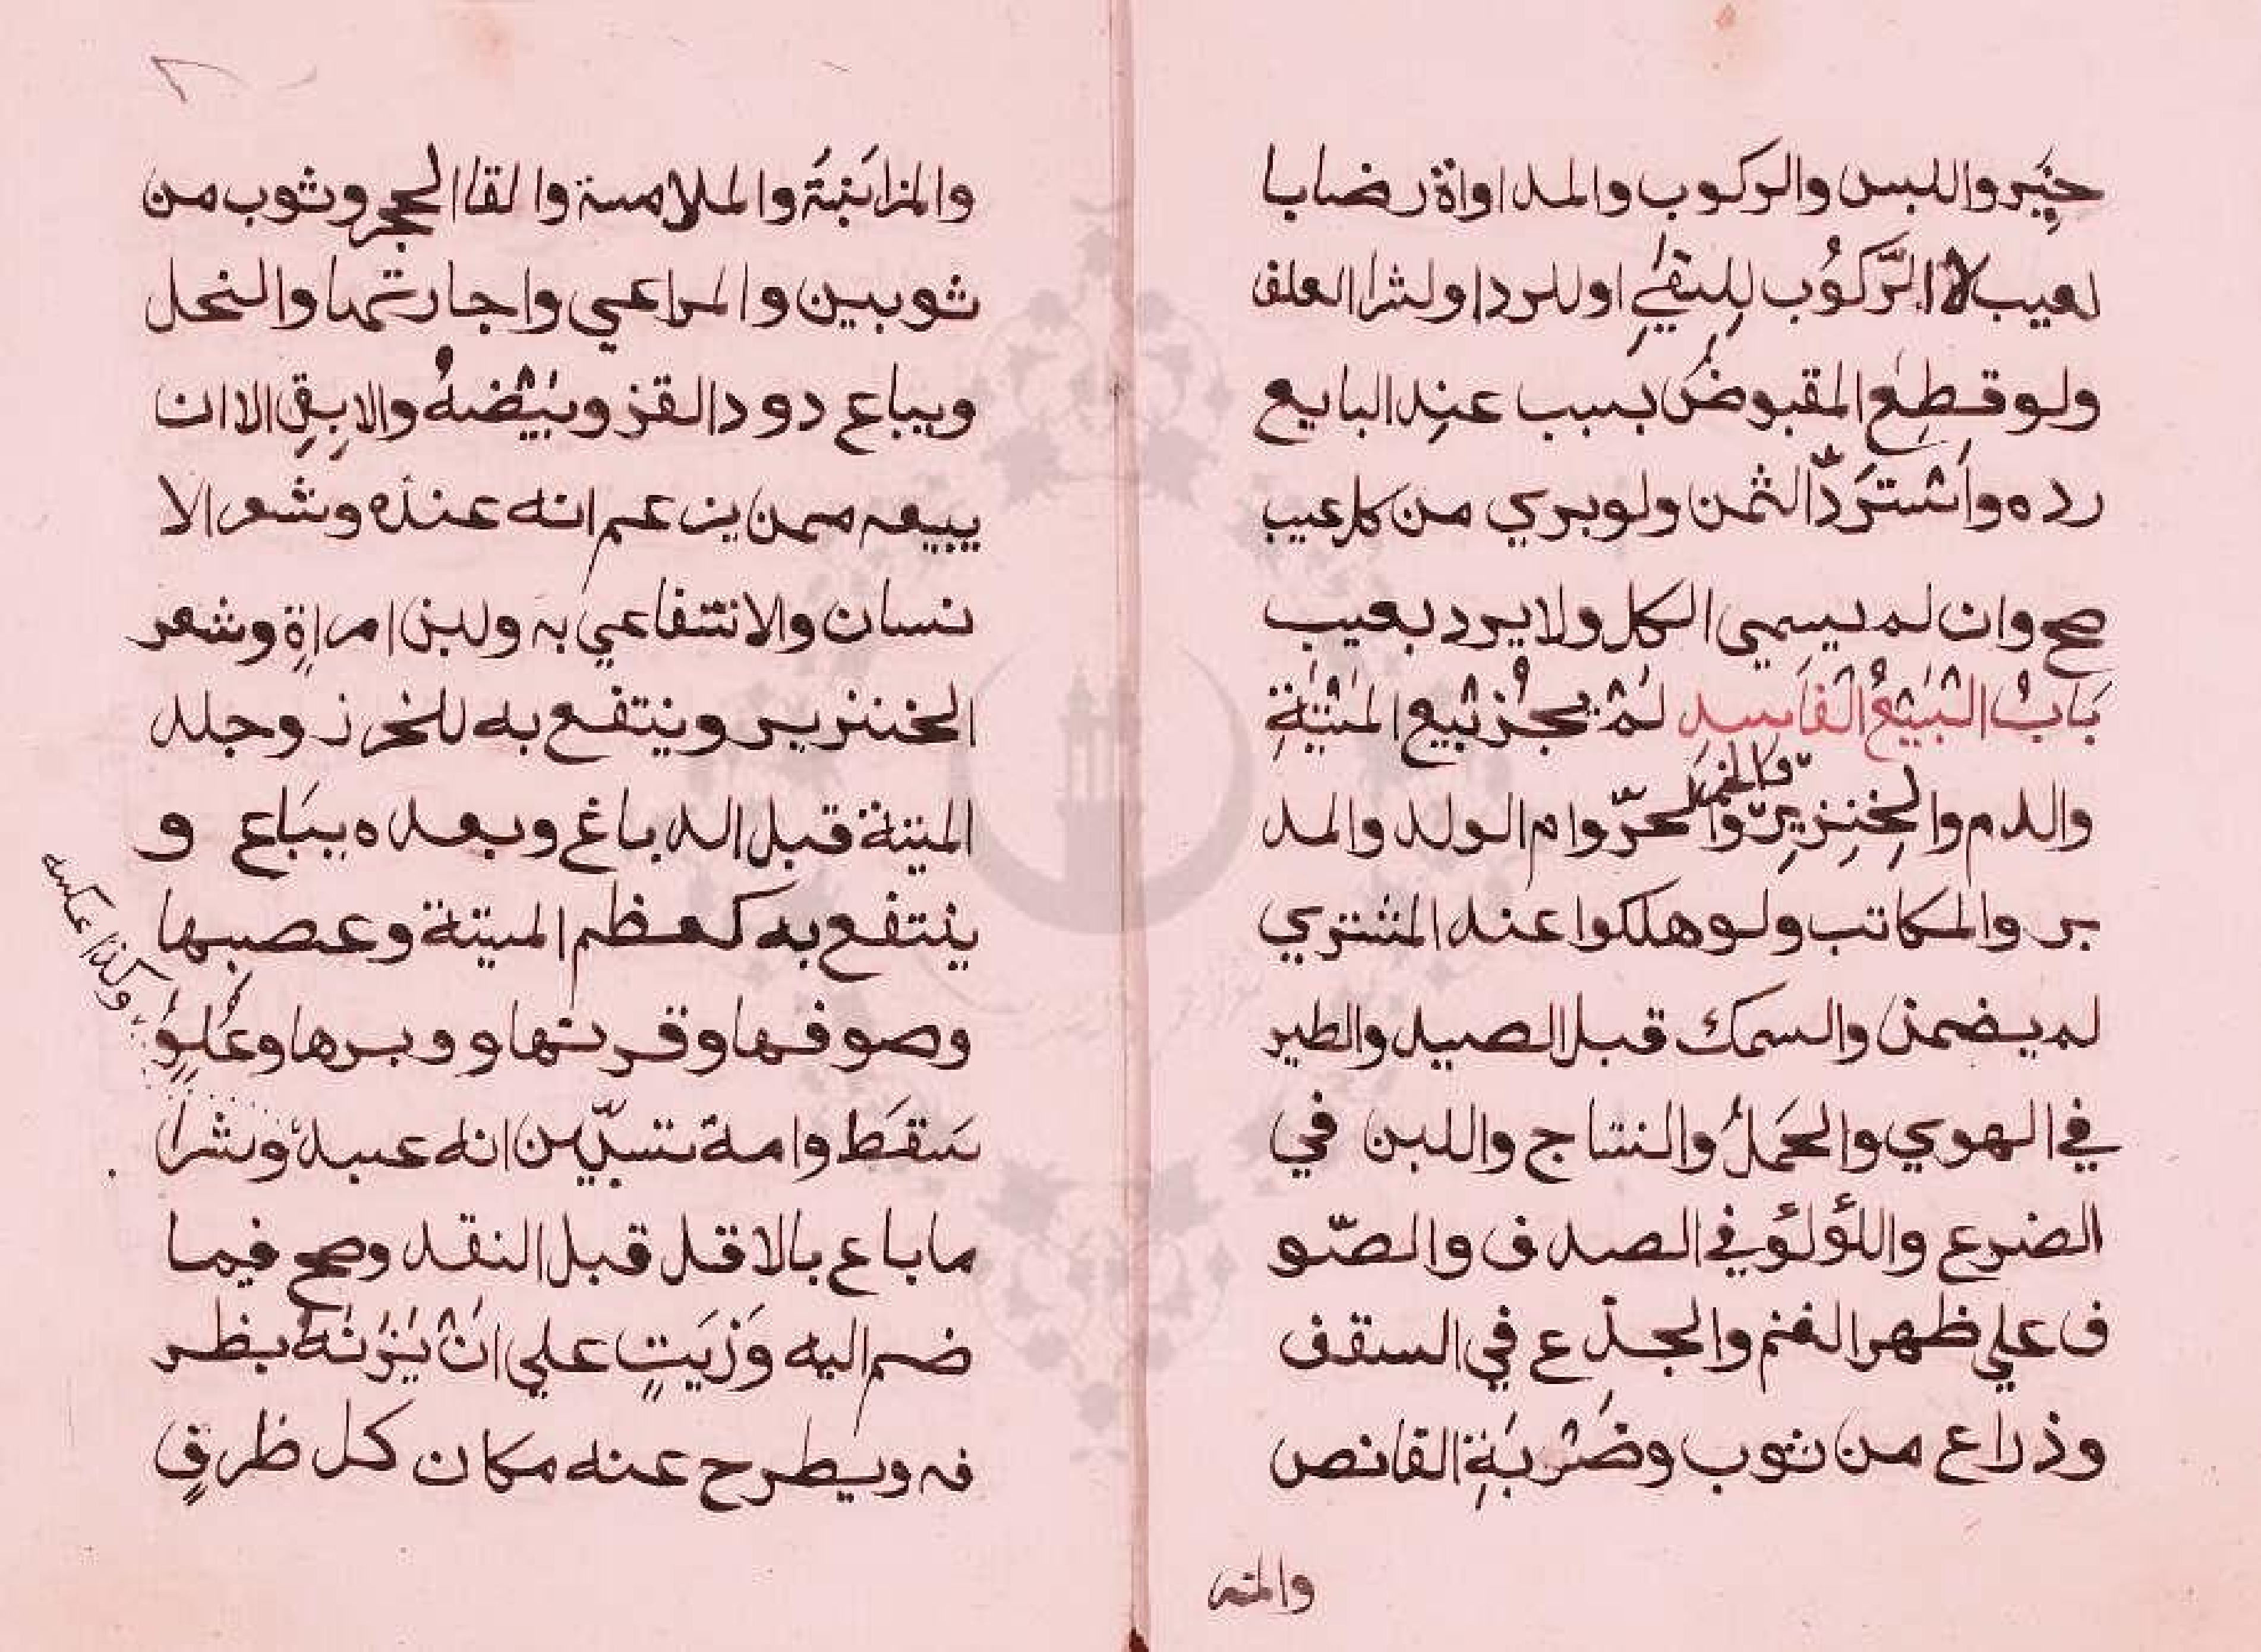 جنَير واللبس والركوب والمداواة رضابا
لعيب لا الرَّكُوب للِسَقيِ او للرد او لشرا العلف
ولو قطِع المقبوضُ بسبب عنِد البايع
رده واَسْترَدَّ الثمن ولو بري من كل عيب
صح وان لم يسمي الكل ولا يرد بعيب
بَابُ الْبَيْعُ الْفَاسِد لمْ يجُز بَيع المَيْتَةِ
والدم والخِنِزيِرّ والخمر والحرّ وام الولد والمد
بر والمكاتب ولو هلكوا عند المشتري
لم يضمن والسمك قبل الصيد والطير
في الهوي والحَملُ والنتاج واللبن في
الضرع واللؤلؤ في الصدف والصّو
ف علي ظهر الغنم والجذع في السقف
وذراع من ثوب وضَرْبَةِ القانص
والمز
والمزابَنَةُ والملامسة والقا الحجر وثوب من
ثوبين والمراعي واجارتها والنحل
ويباع دود القز وبَيْضهُ والابِقِ الا ان
يبيعه ممن يزعم انه عنده وشعر الا
نسان والانتفاعي به ولبن امراةٍ وشعر
الخننزير وينتفع به للخرز وجلد
الميتة قبل الدباغ وبعده يبَاع و
ينتفع به كعظم الميتة وعصبها
وصوفها وقرنها ووبرها وعُلوٍ
سَقَط وامةٌ تبيّن انه عبدٌ وشرا
وكذا عكسه
ما باع بالاقل قبل النقد وصح فيما
ضم اليه وَزَيَتٍ علي انْ يَزنَهُ بظر
فه ويطرح عنه مكان كل ظرفٍ